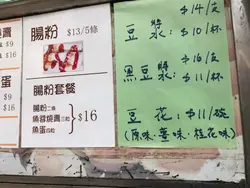 腸粉 $13/5條
$9
蛋
$9
$16
腸粉套餐
腸粉二條
魚蓉燒賣三粒
魚蛋四粒
$16
$14/支
豆漿 $10/杯
$16/支
黑豆漿 $10/杯
豆花 $11/碗
(原味·薑味·桂花味)